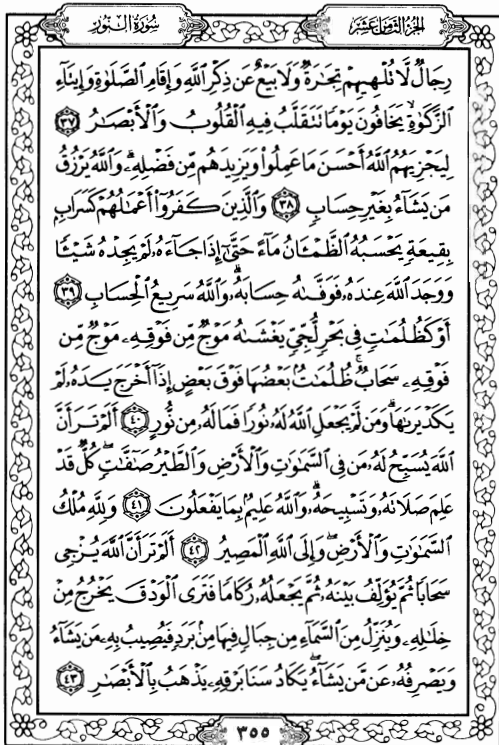 الجزء الثامن عشر
سورة النور
رِجَالٌ لَّا تُلْهِيهِمْ تِجَٰرَةٌ وَلَا بَيْعٌ عَن ذِكْرِ ٱللَّهِ وَإِقَامِ ٱلصَّلَوٰةِ وَإِيتَآءِ
ٱلزَّكَوٰةِ يَخَافُونَ يَوْمًا تَتَقَلَّبُ فِيهِ ٱلْقُلُوبُ وَٱلْأَبْصَٰرُ ٣٧
لِيَجْزِيَهُمُ ٱللَّهُ أَحْسَنَ مَا عَمِلُوا۟ وَيَزِيدَهُم مِّن فَضْلِهِۦ وَٱللَّهُ يَرْزُقُ
مَن يَشَآءُ بِغَيْرِ حِسَابٍ ٣٨ وَٱلَّذِينَ كَفَرُوٓا۟ أَعْمَٰلُهُمْ كَسَرَابٍۭ
بِقِيعَةٍ يَحْسَبُهُ ٱلظَّمْـَٔانُ مَآءً حَتَّىٰٓ إِذَا جَآءَهُۥ لَمْ يَجِدْهُ شَيْـًٔا
وَوَجَدَ ٱللَّهَ عِندَهُۥ فَوَفَّىٰهُ حِسَابَهُۥ وَٱللَّهُ سَرِيعُ ٱلْحِسَابِ ٣٩
أَوْ كَظُلُمَٰتٍ فِى بَحْرٍ لُّجِّىٍّ يَغْشَىٰهُ مَوْجٌ مِّن فَوْقِهِۦ مَوْجٌ مِّن
فَوْقِهِۦ سَحَابٌ ظُلُمَٰتٌۢ بَعْضُهَا فَوْقَ بَعْضٍ إِذَآ أَخْرَجَ يَدَهُۥ لَمْ
يَكَدْ يَرَىٰهَا وَمَن لَّمْ يَجْعَلِ ٱللَّهُ لَهُۥ نُورًا فَمَا لَهُۥ مِن نُّورٍ ٤٠ أَلَمْ تَرَ أَنَّ
ٱللَّهَ يُسَبِّحُ لَهُۥ مَن فِى ٱلسَّمَٰوَٰتِ وَٱلْأَرْضِ وَٱلطَّيْرُ صَٰٓفَّٰتٍ كُلٌّ قَدْ
عَلِمَ صَلَاتَهُۥ وَتَسْبِيحَهُۥ وَٱللَّهُ عَلِيمٌۢ بِمَا يَفْعَلُونَ ٤١ وَلِلَّهِ مُلْكُ
ٱلسَّمَٰوَٰتِ وَٱلْأَرْضِ وَإِلَى ٱللَّهِ ٱلْمَصِيرُ ٤٢ أَلَمْ تَرَ أَنَّ ٱللَّهَ يُزْجِى
سَحَابًا ثُمَّ يُؤَلِّفُ بَيْنَهُۥ ثُمَّ يَجْعَلُهُۥ رُكَامًا فَتَرَى ٱلْوَدْقَ يَخْرُجُ مِنْ
خِلَٰلِهِۦ وَيُنَزِّلُ مِنَ ٱلسَّمَآءِ مِن جِبَالٍ فِيهَا مِنۢ بَرَدٍ فَيُصِيبُ بِهِۦ مَن يَشَآءُ
وَيَصْرِفُهُۥ عَن مَّن يَشَآءُ يَكَادُ سَنَا بَرْقِهِۦ يَذْهَبُ بِٱلْأَبْصَٰرِ ٤٣
٣٥٥